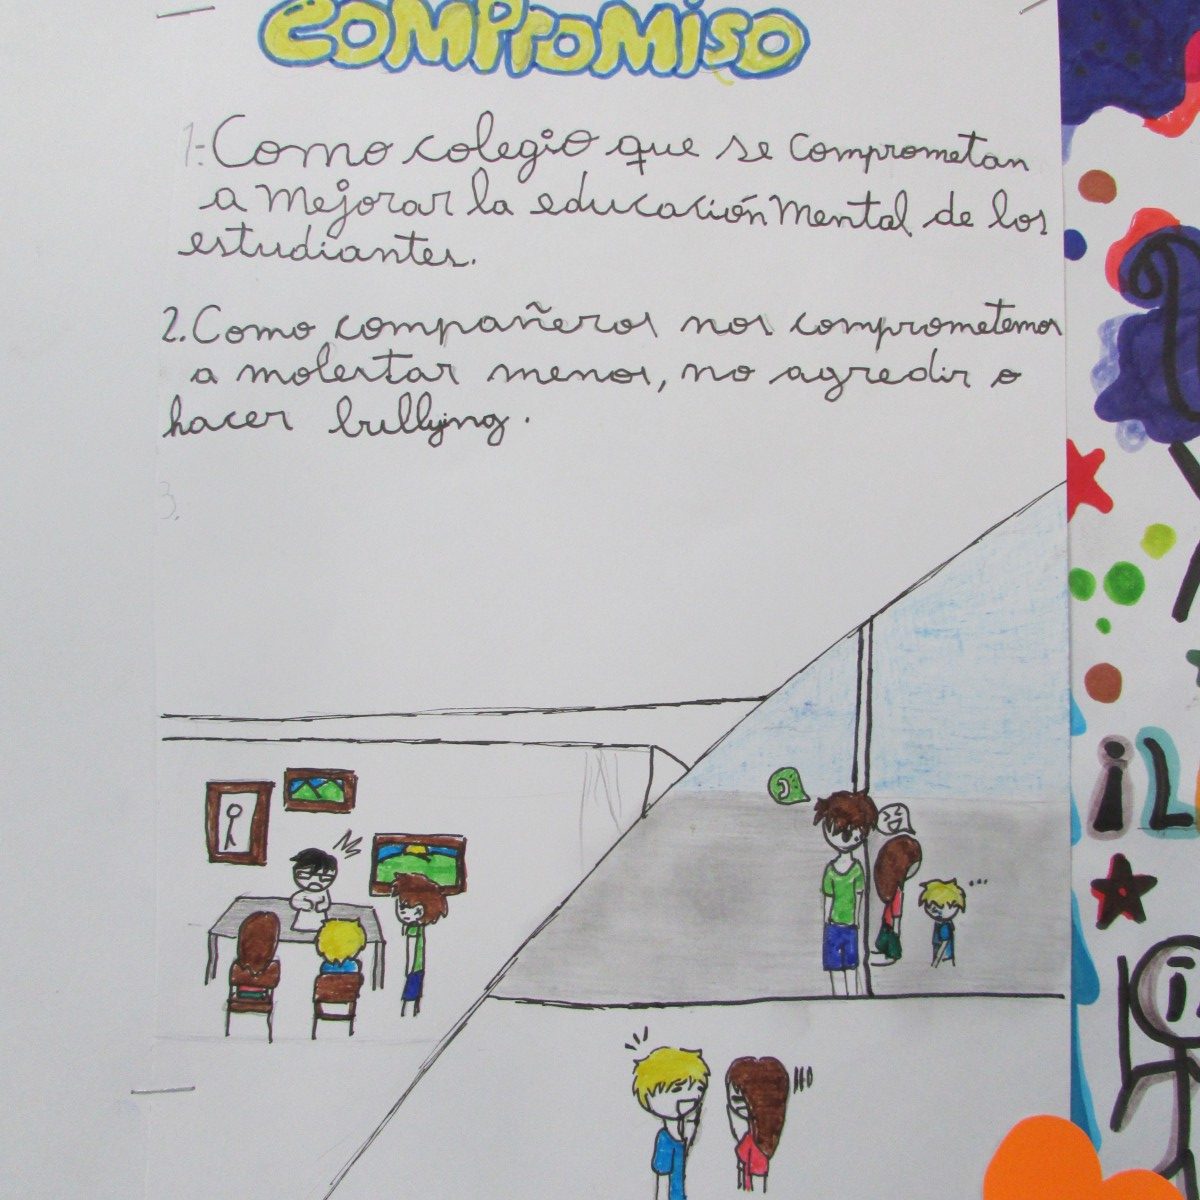 COMPROMISO
1-Como colegio que se comprometan
a mejorar la educación mental de los
estudiantes.
2.Como compañeros nos comprometemos
a molestar menos, no agredir o
hacer bullying.
3.